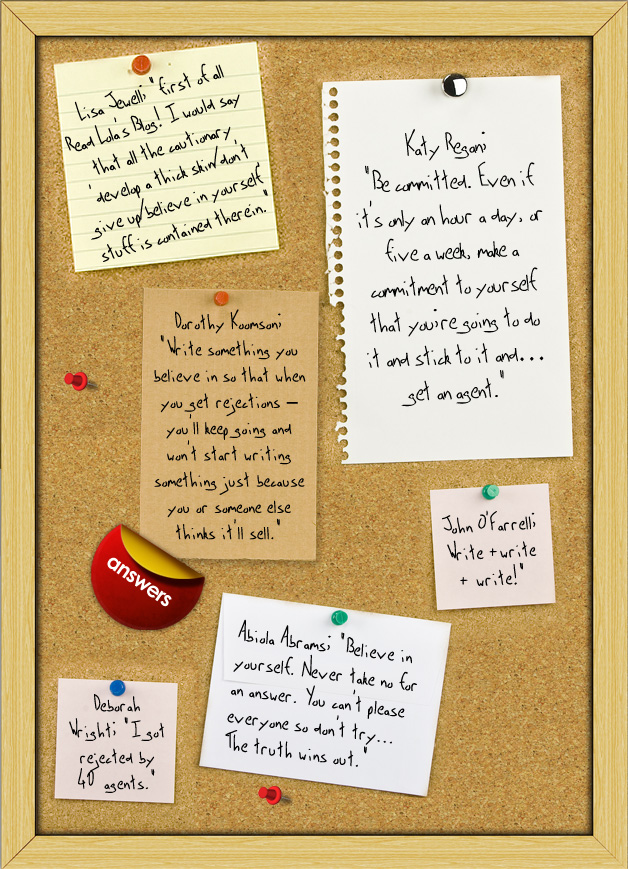 Lisa Jewell; "first of all
Read Lola's Blog! I would say
that all the cautionary
'develop a thick skin/don't
give up/believe in yourself
stuff is contained therein."
Katy Regan;
"Be committed. Even if
it's only an hour a day, or
five a week, make a
commitment to yourself
that you're going to do
it and stick to it and...
get an agent."
Dorothy Koomson;
"Write something you
believe in so that when
you get rejections –
you'll keep going and
won't start writing
something just because
you or someone else
thinks it'll sell."
John O'Farrell;
Write + write
+ write!"
answers
Abiola Abrams; "Believe in
yourself. Never take no for
an answer. You can't please
everyone so don't try...
The truth wins out."
Deborah
Wright; "I got
rejected by
40 agents."